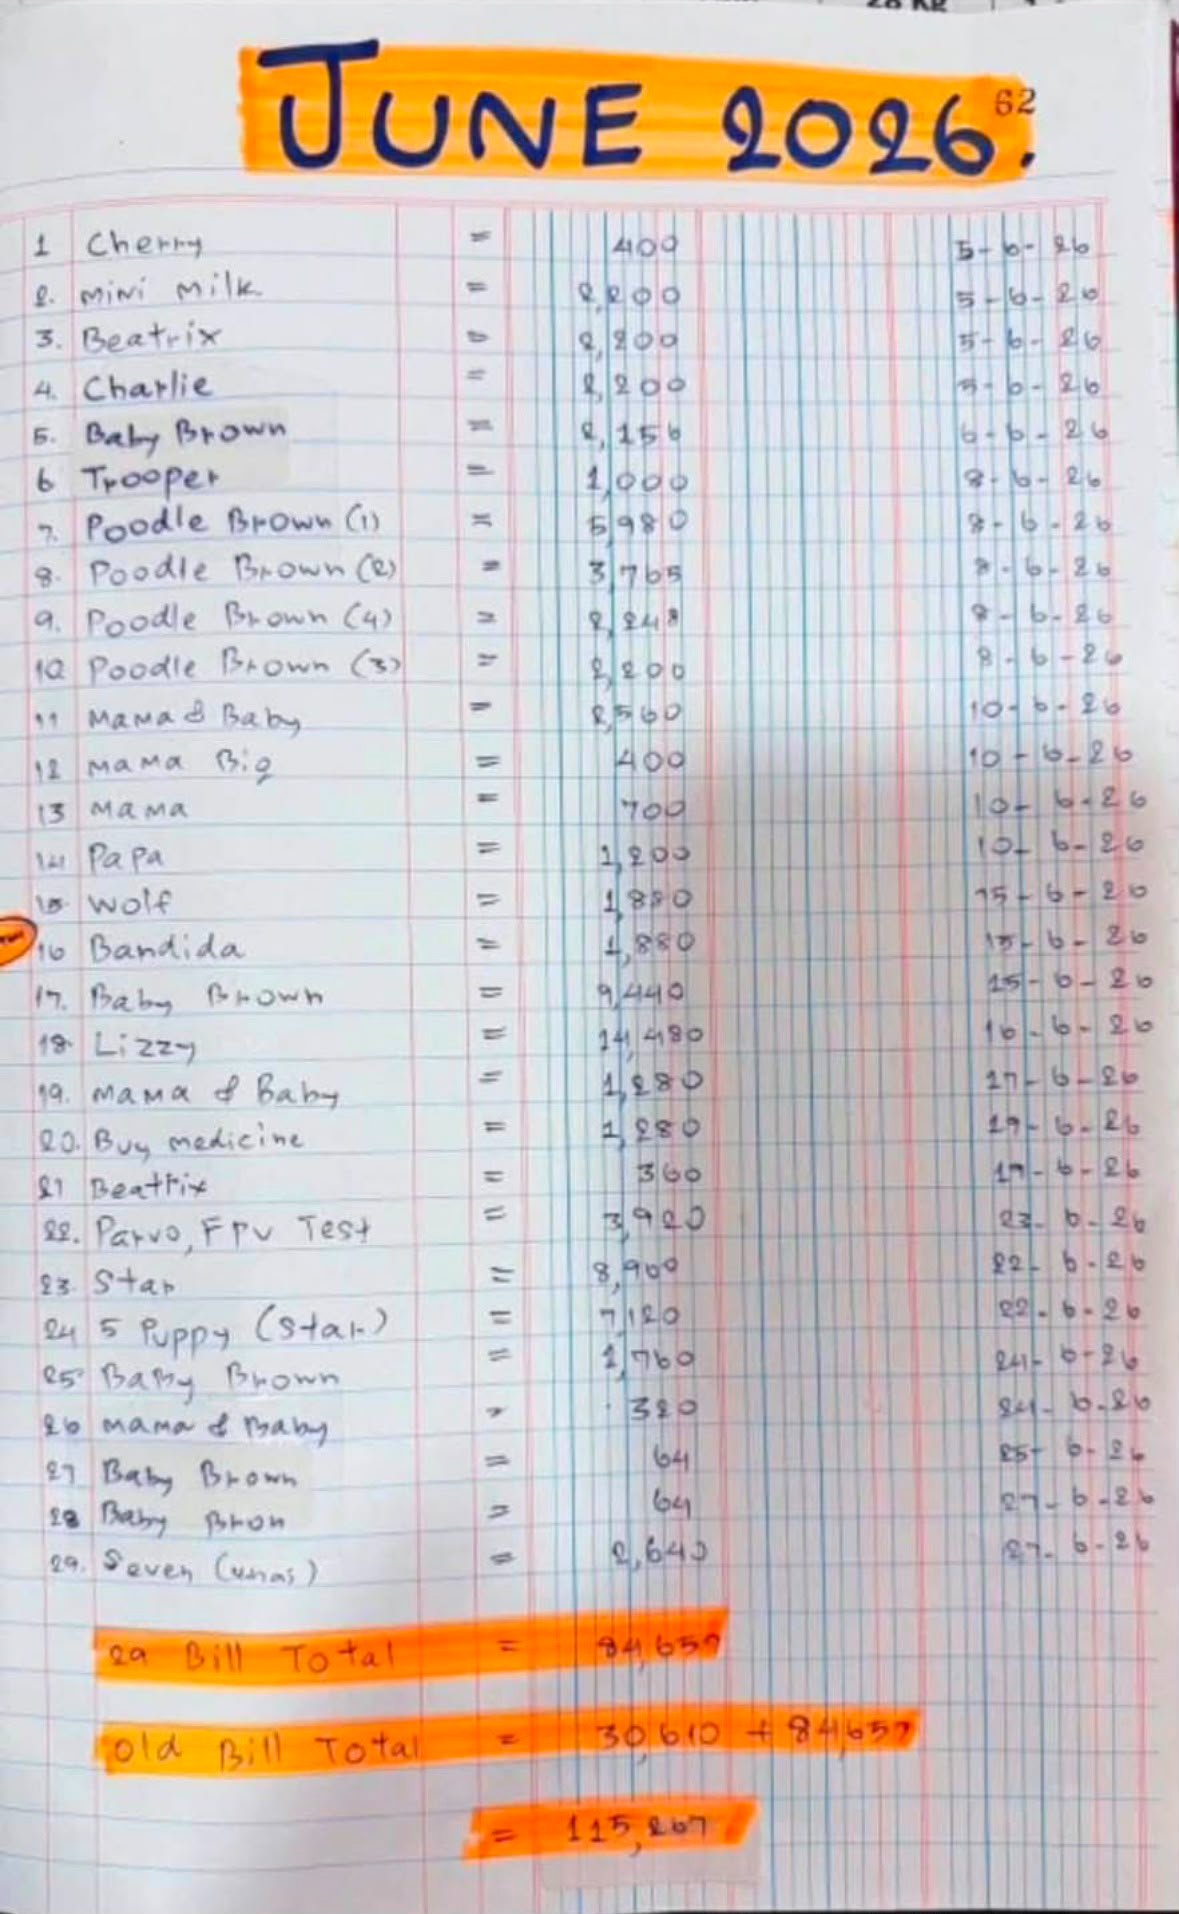 28 KG
62
JUNE 2026.
1 Cherry = 400 5-6-26
2. Mini Milk = 2,200 5-6-26
3. Beatrix = 2,200 5-6-26
4. Charlie = 2,200 5-6-26
5. Baby Brown = 2,156 6-6-26
6 Trooper = 1,000 8-6-26
7. Poodle Brown (1) = 5,980 8-6-26
8. Poodle Brown (2) = 3,765 8-6-26
9. Poodle Brown (4) = 2,248 8-6-26
10 Poodle Brown (3) = 2,200 8-6-26
11 Mama & Baby = 2,560 10-6-26
12 Mama Big = 400 10-6-26
13 Mama = 700 10-6-26
14 Papa = 1,200 10-6-26
15 Wolf = 1,880 15-6-26
16 Bandida = 1,880 15-6-26
17. Baby Brown = 9,440 15-6-26
18. Lizzy = 14,480 16-6-26
19. Mama & Baby = 1,280 17-6-26
20. Buy medicine = 1,280 19-6-26
21 Beatrix = 360 19-6-26
22. Parvo, FPV Test = 3,920 23-6-26
23. Star = 8,960 22-6-26
24 5 Puppy (Star) = 7,120 22-6-26
25 Baby Brown = 1,760 24-6-26
26 Mama & Baby = 320 24-6-26
27 Baby Brown = 64 25-6-26
28 Baby Bron = 64 27-6-26
29. Seven (unas) = 2,640 27-6-26
29 Bill Total = 84,657
Old Bill Total = 30,610 + 84,657
= 115,267